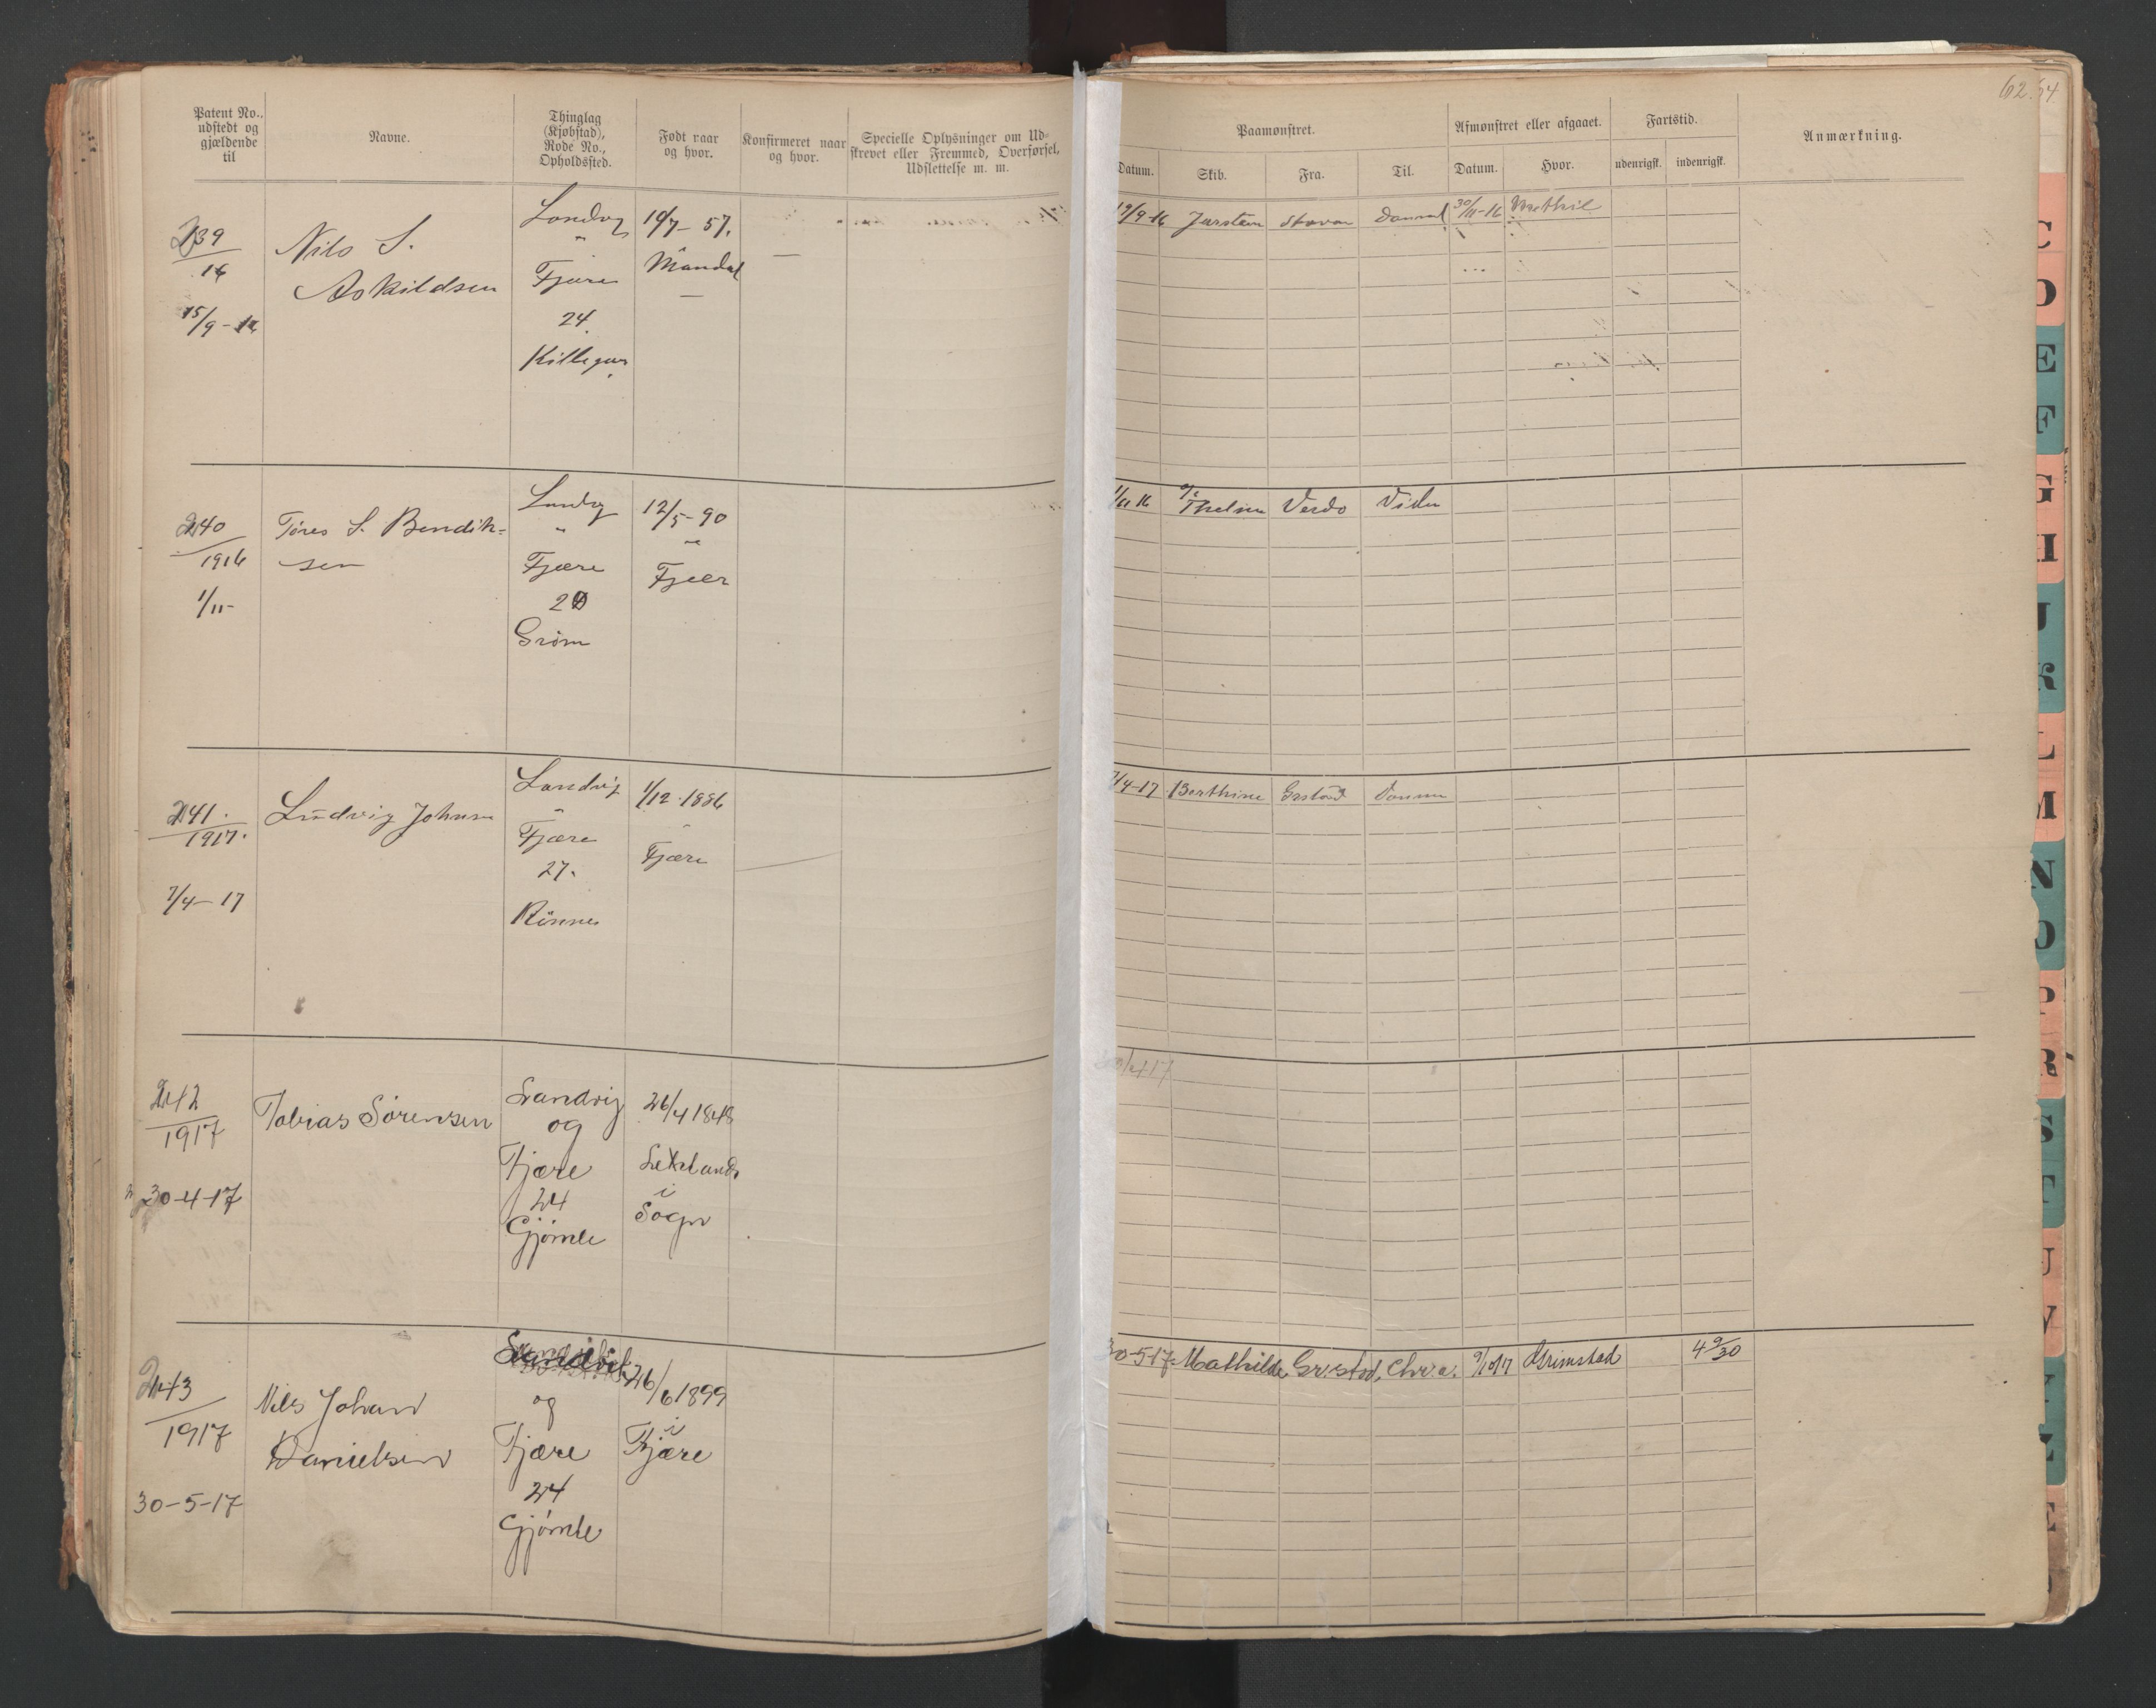 62.
54
Patent No.,
udstedt og
gjældende
til
Navne.
Thinglag
(Kjøbstad),
Rode No.,
Opholdssted.
Født naar
og hvor.
Konfirmeret naar
og hvor.
Specielle Oplysninger om Ud-
skrevet eller Fremmed, Overførsel,
Udslettelse m. m.
Paamønstret.
Datum.
Skib.
Fra.
Til.
Afmønstret eller afgaaet.
Datum.
Hvor.
Fartstid.
udenrigsk.
indenrigsk.
Anmærkning.
239
16
15/9-16
Nils S.
Askildsen
Landvig
"
Fjære
24.
Killegaar
19/7-57.
Mandal
—
—
19/9-16 Stavan 30/11-16 Methil
240
1916
1/11-
Tøres S. Bendik=
sen
Landvig
"
Fjære
20
Grøm
12/5-90
"
Fjær
1/11 16 Thelma
241.
1917.
7/4-17
Ludvig Johnsen
Landvig
"
Fjære
27.
Rønnes
1/12-1886
"
Fjære
7/4-17 Berthine Grstad
242
1917
30-4-17
Tobias Sørensen
Landvig
og
Fjære
24
Gjømle
26/4 1848
i
Sogn
30/4 17
243
1917
30-5-17
Nils Johan
Danielsen
Landvik
og
Fjære
24
Gjømle
26/6 1899
i
Fjære
30-5-17 Mathilde Gr.stad, Chr.a. 9/10 17 Grimstad 4 9/30
C
D
E
F
G
H
J
K
L
M
N
O
P
R
S
T
U
V